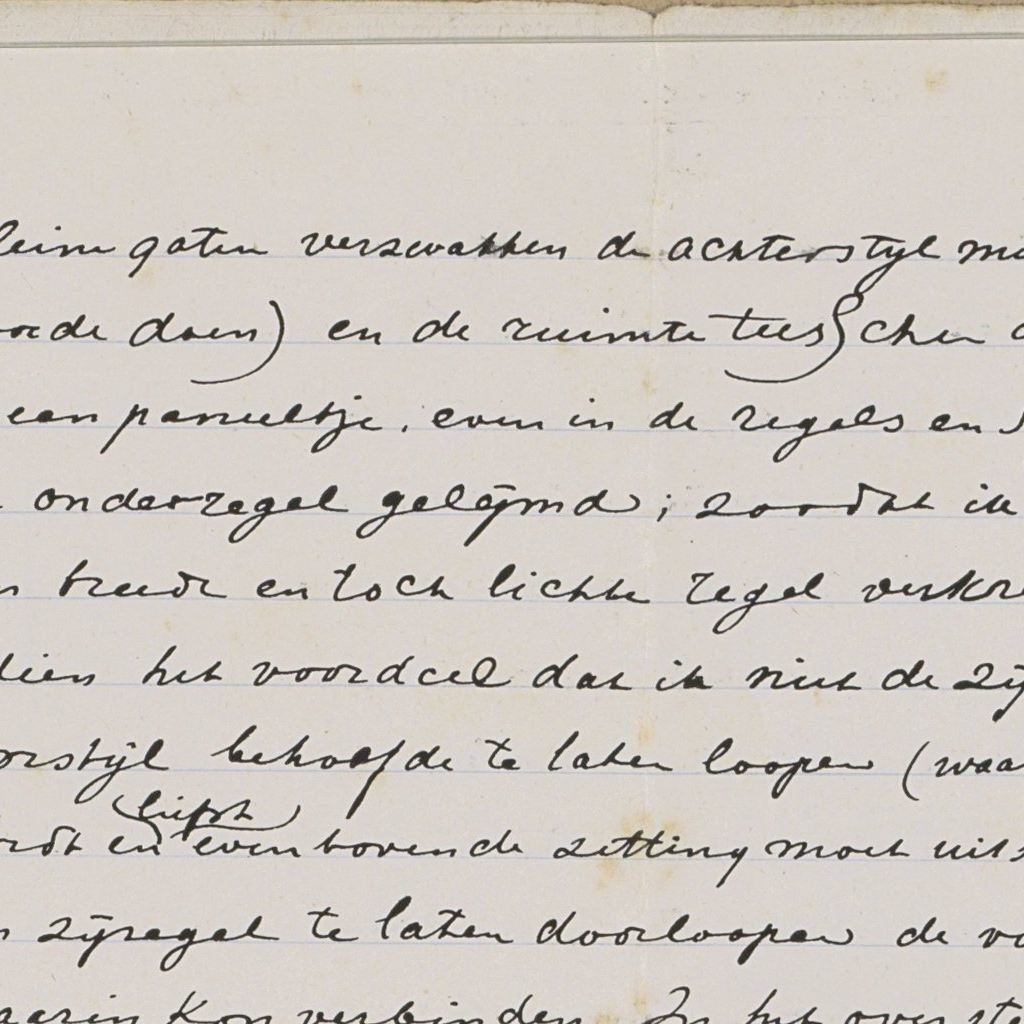 gaten verzwakken de achterstijl
doen) en de ruimte tusschen
een paneeltje, even in de regels en
onderregel gelijmd; zoodat ik
breede en toch lichte regel
het voordeel dat ik niet de
behoefde te laten loopen (
liefst
en even boven de zitting moet
zijregel te laten doorloopen de
kon verbinden. In het